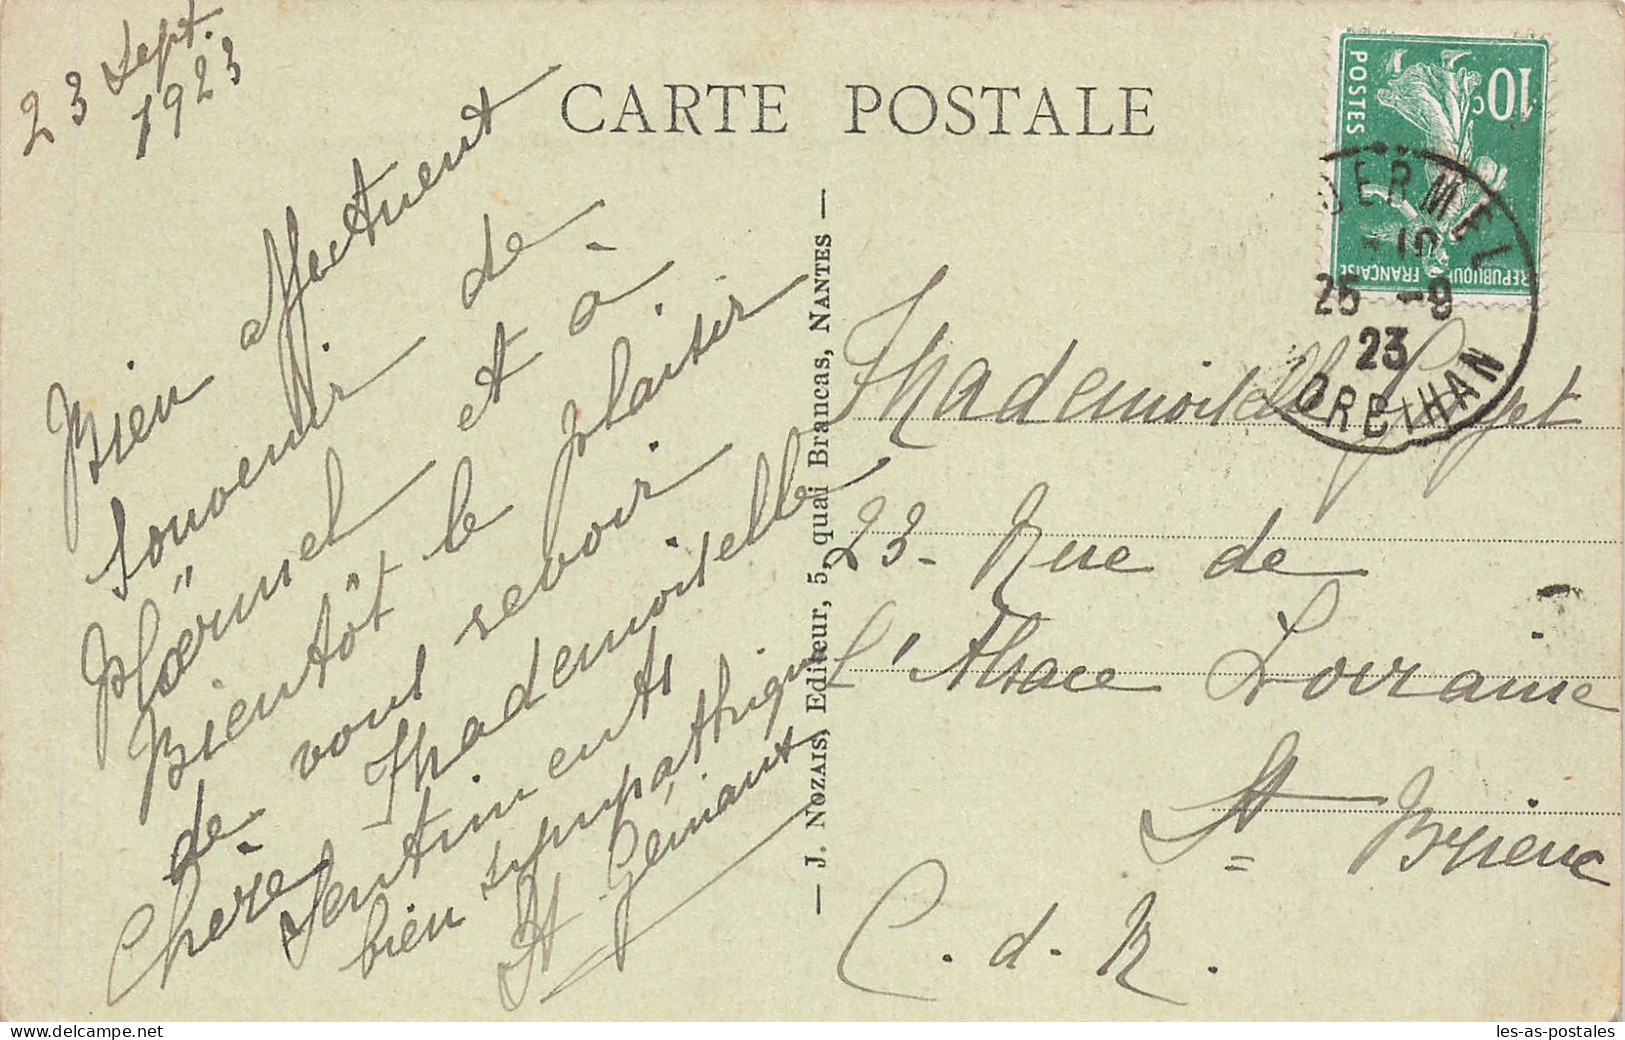 23 Sept.
1923
CARTE POSTALE
10c
POSTES
REPUBLIQUE FRANÇAISE
OERMEL
10
25 -9
23
ORBIHAN
Bien affectueux
souvenir de
Ploërmel et à
Bientôt le plaisir
de vous revoir
Chère Mademoiselle
Sentiments
bien sympathiques
— J. NOZAIS, Editeur, 5, quai Brancas, NANTES —
Mademoiselle
23 - Rue de
l'Alsace Lorraine
St Brieuc
C. d. N.
les-as-postales